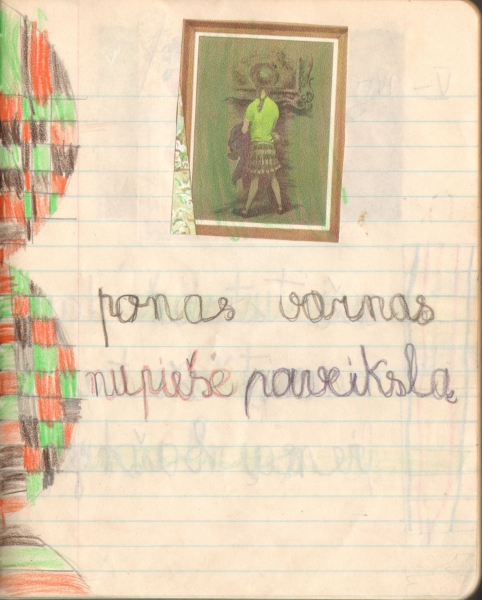 ponas varnas
nupiešė paveikslą